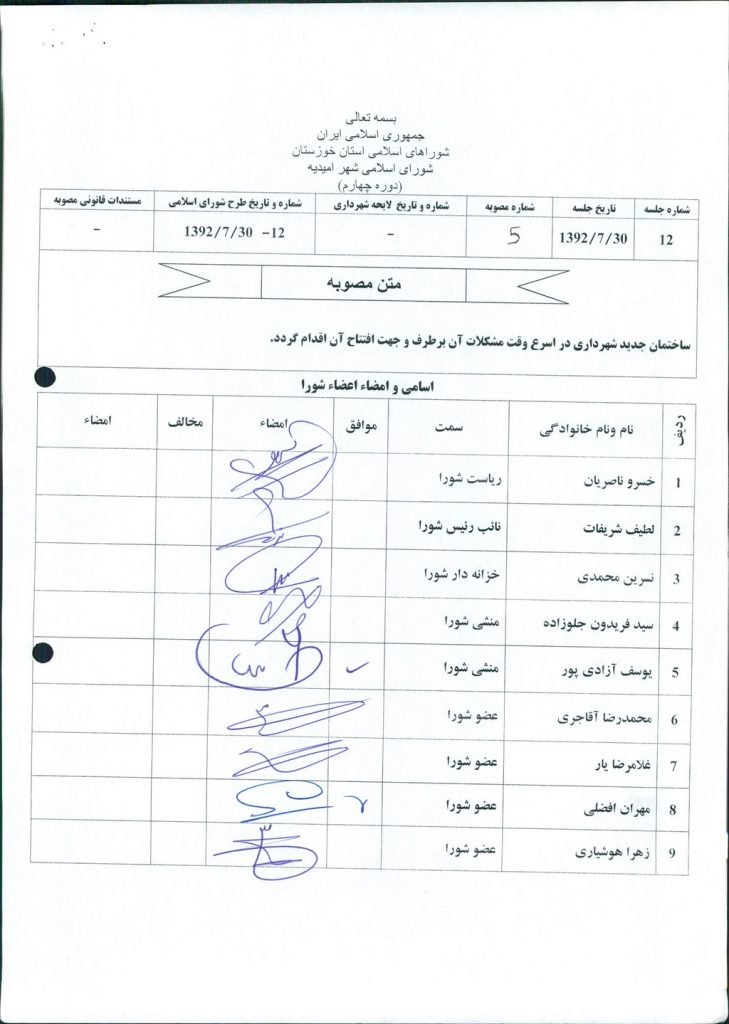 بسمه تعالی
جمهوری اسلامی ایران
شوراهای اسلامی استان خوزستان
شورای اسلامی شهر امیدیه
(دوره چهارم)
شماره جلسه تاریخ جلسه شماره مصوبه شماره و تاریخ لایحه شهرداری شماره و تاریخ طرح شورای اسلامی مستندات قانونی مصوبه
12 1392/7/30 5 - 12- 1392/7/30 -
متن مصوبه
ساختمان جدید شهرداری در اسرع وقت مشکلات آن برطرف و جهت افتتاح آن اقدام گردد.
اسامی و امضاء اعضاء شورا
ردیف نام ونام خانوادگی سمت موافق امضاء مخالف امضاء
1 خسرو ناصریان ریاست شورا
2 لطیف شریفات نائب رئیس شورا
3 نسرین محمدی خزانه دار شورا
4 سید فریدون جلوزاده منشی شورا
5 یوسف آزادی پور منشی شورا
6 محمدرضا آقاجری عضو شورا
7 غلامرضا یار عضو شورا
8 مهران افضلی عضو شورا
9 زهرا هوشیاری عضو شورا